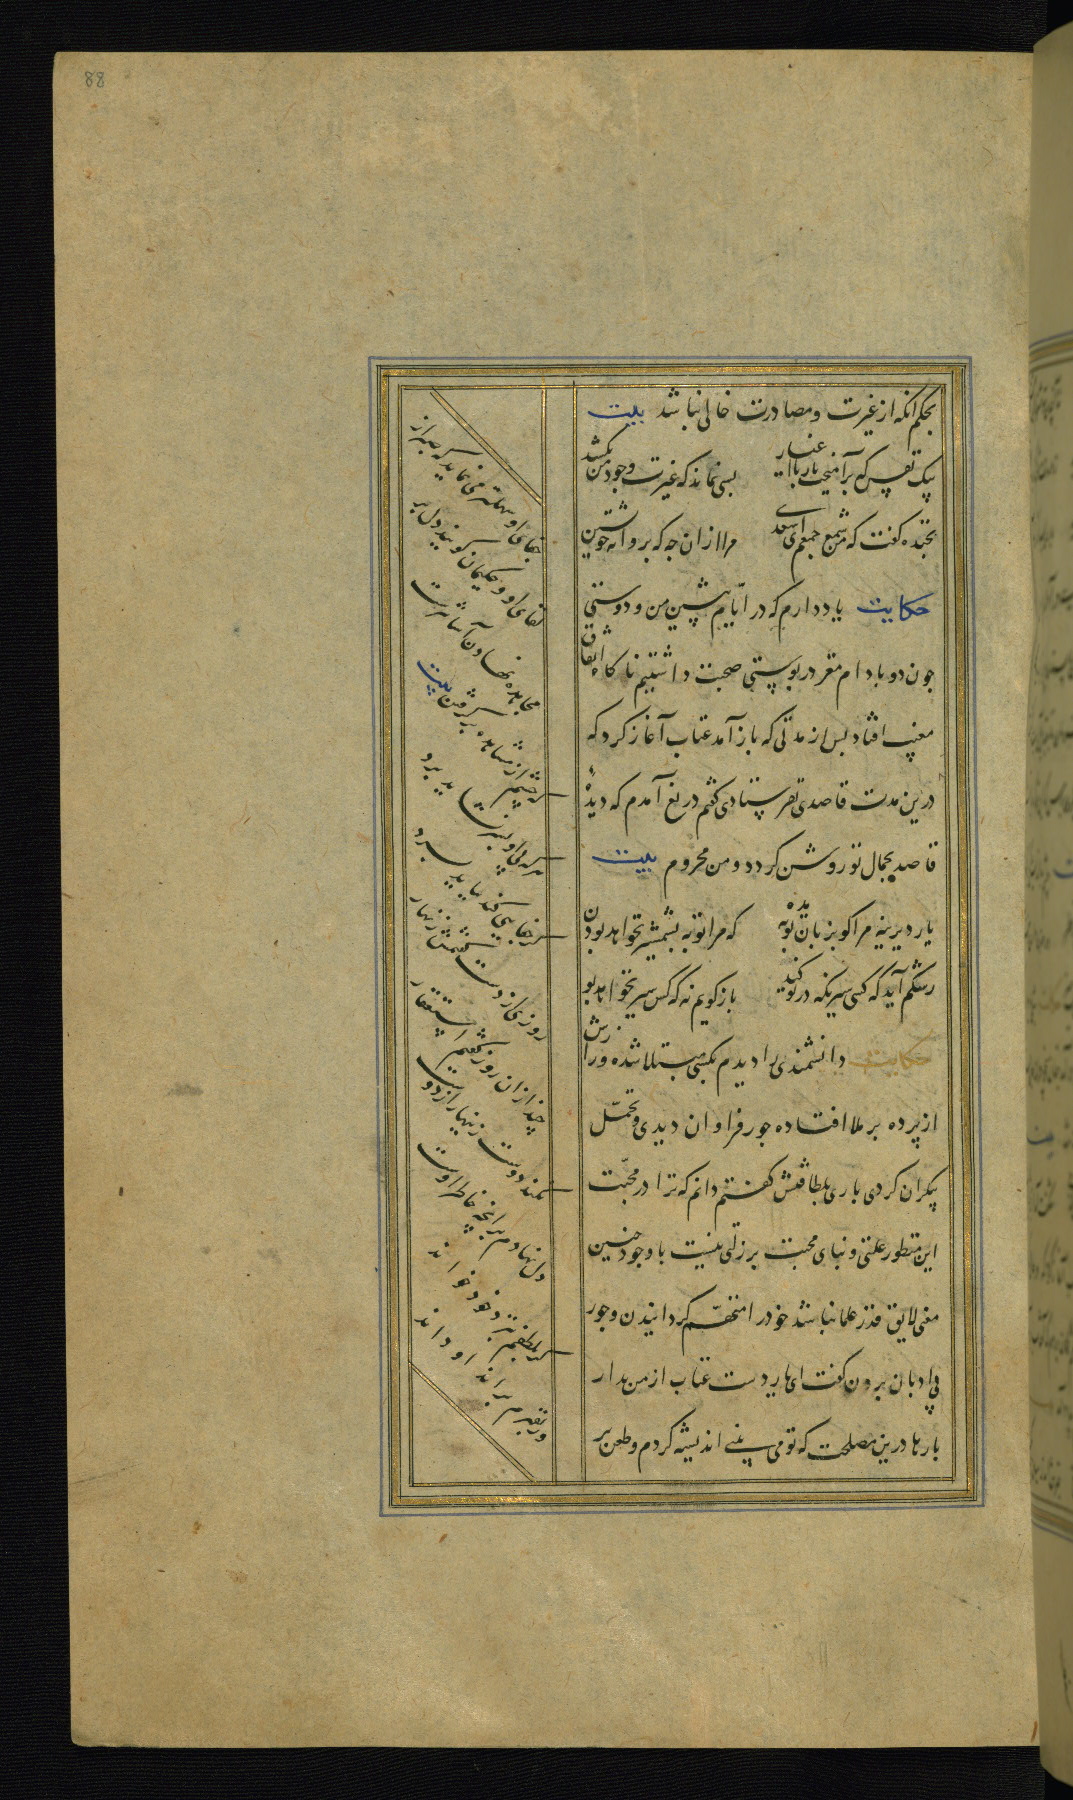 88
بحکم آنکه از غیرت و مصادرت خالی نباشد بیت
بیک نفس که برآمیخت یار با اغیار بسی نماند که غیرت وجود من بکشد
بخنده گفت که من شمع جمعم ای سعدی مرا ازان چه که پروانه خویشتن
حکایت یاد دارم که در ایّام پیشین من و دوستی
چون دو بادام مغز در پوستی صحبت داشتیم ناگاه اتفاق
مغیب افتاد پس از مدتی که باز آمد عتاب آغاز کرد که
درین مدت قاصدی نفرستادی گفتم دریغ آمدم که دیدهٔ
قاصد بجمال تو روشن گردد و من محروم بیت
یار دیرینه مرا گو بزبان توبه مده که مرا توبه بشمشیر نخواهد بودن
رشکم آید که کسی سیر نگه در تو کند باز گویم نه که کس سیر نخواهد بود
حکایت دانشمندی را دیدم بکسی مبتلا شده و رازش
از پرده برملا افتاده جور فراوان دیدی و تحمّل
بیکران کردی باری بلطافتش گفتم دانم که ترا در محبّت
این منظور علتی و بنای محبت بر زلتی نیست با وجود چنین
معنی لایق قدر علما نباشد خود را متهّم گردانیدن و جور
بی ادبان بردن گفت ای یار دست عتاب از من بدار
بارها درین مصلحت که تو می بینی اندیشه کردم و طعن بر
جفای او سهلتر می نماید که صبر از
لقای او و حکیمان گویند دل بر
مجاهده نهادن آسانترست
که چشم از مشاهده برگرفتن بیت
هر که بی او بسر نشاید برد
گر جفایی کند بباید برد
روزی از دست گفتمش زنهار
چند ازان روز گفتم استغفار
نکند دوست زینهار از دوست
دل نهادم بر انچه خاطر اوست
گر بلطفم بنزد خود خواند
ور بقهرم براند او داند